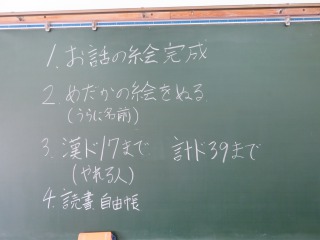 1. お話の絵完成
2. めだかの絵をぬる
(うらに名前)
3. 漢ド17まで 計ド39まで
(やれる人)
4. 読書 自由帳